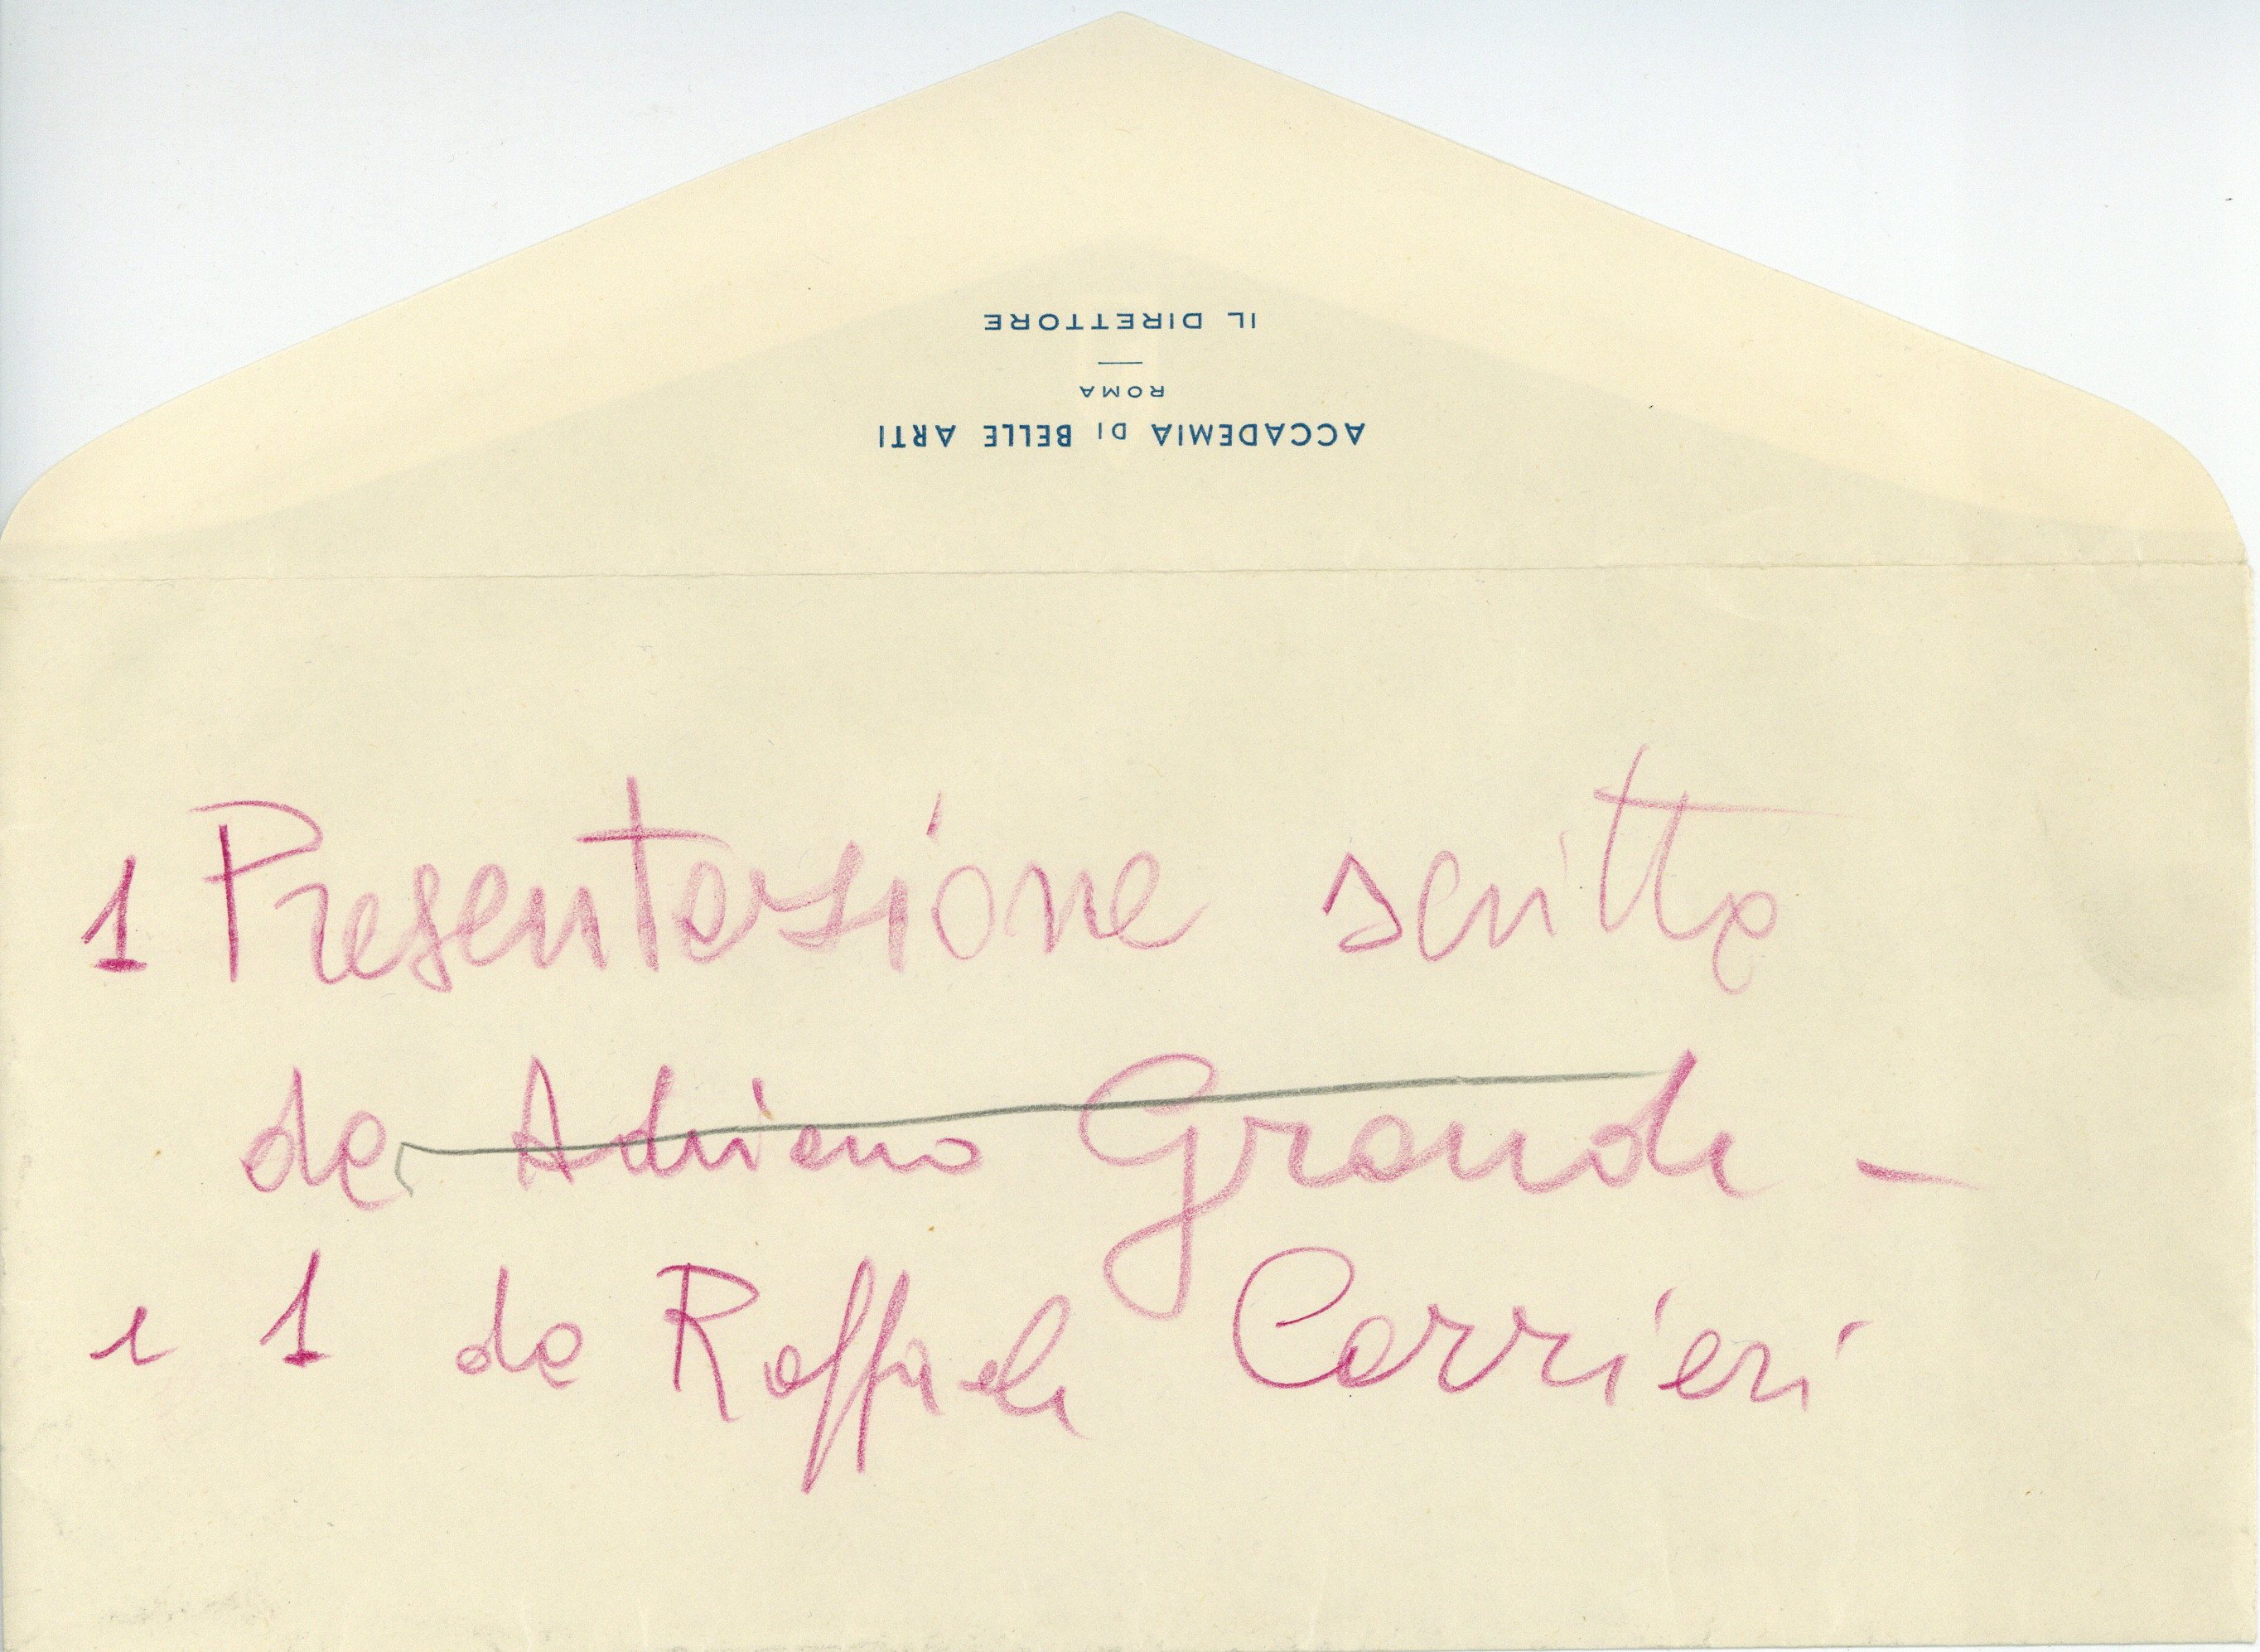 ACCADEMIA DI BELLE ARTI
ROMA
IL DIRETTORE
1 Presentazione scritta
da Adriano Grande -
e 1 da Raffaele Carrieri